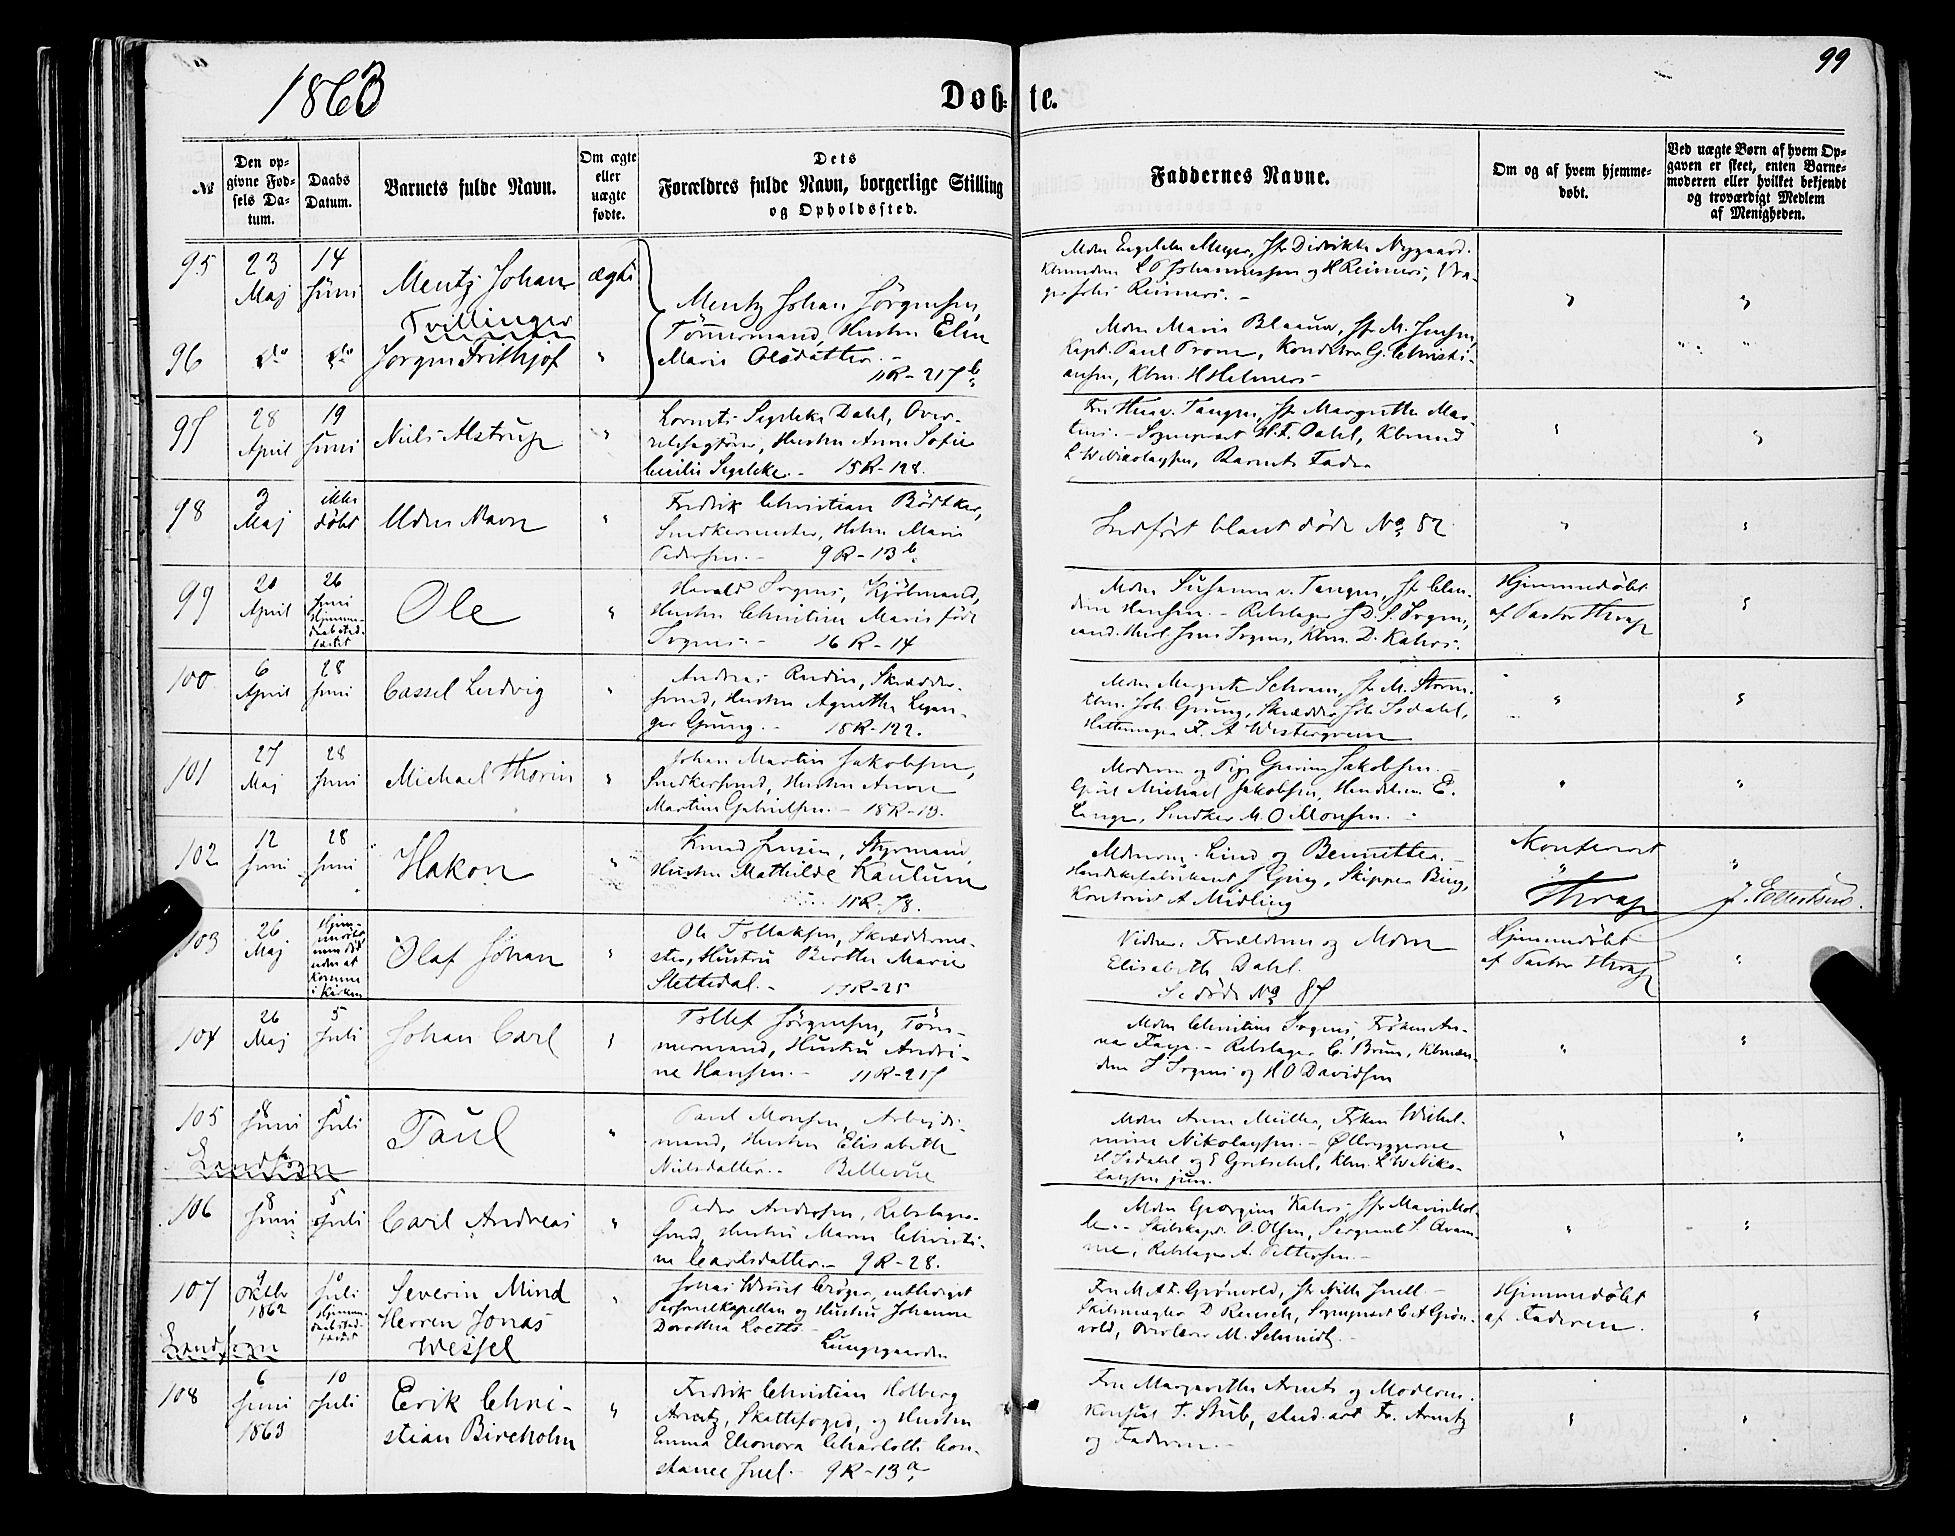 1863
Døb= te.
99
№
Den op-
givne Fød-
sels Da-
tum.
Daabs
Datum.
Barnets fulde Navn.
Om ægte
eller
uægte
fødte.
Dets
Forældres fulde Navn, borgerlige Stilling
og Opholdssted.
Faddernes Navne.
Om og af hvem hjemme-
døbt.
Ved uægte Børn af hvem Op-
gaven er skeet, enten Barne-
moderen eller hvilket bekjendt
og troværdigt Medlem
af Menigheden.
95
23
Maj
14
Juni
Mentz Johan
ægte
Mentz Johan Jörgensen,
Tømmermand, Hustru Elen
Marie Olsdatter.-
11R-217 b
Tvillinger
96
do
do
Jørgen Frithjof
"
Mdm Maria Blaauw, Jfr M. Jensen,
Kapt. Paul Trom, Konditor G. Christi-
ansen, Kbm. H Helmers-
97
28
April
19
Juni
Niels Alstrup
"
Segelcke Dahl, Over-
retssagfører, Hustru Anne Sofie
Cecilie Segelcke.- 15R-128.
Sognepræst H. F. Dahl, Kbmand
L W Nikolaysen, Barnets Fader
98
3
Maj
ikke
døbt
Uden Navn
"
Fredrik Christian Bødtker,
Snedkermester, Hstru Marie
Pedersen.- 9R-13 b
Indført blant døde No 82
99
20
April
26
Juni
Hjemme-
daab sted-
fæstet
Ole
"
Harald Irgens, Kjøbmand,
Hustru Christine Marie født
Irgens.- 16R-14
Mdm Susanne v. Tangen, Jfr Clau-
dine Hansen.- Rebslager J D. S. Irgens,
cand. theol. Jens Irgens, Kbm. D. Kahrs.
Hjemmedøbt
af Pastor Thrap
100
6
April
28
Juni
Cassel Ludvig
"
Andreas Rudin, Skrædder-
svend, Hustru Agnethe Legan-
ger Gjung.- 18R-122.
Mdm Magrete Schram, Jfr M. Storm.
Kbm. Joh. Gjung, Skrædder Joh. Isdahl,
Hattemager F. A Westergreen
101
27
Maj
28
Juni
Michael Thorin
"
Johan Martin Jakobsen,
Snedkersvend, Hustru Anne
Martine Gabrielsen.- 18R-13.
Moderen og Pige Gurine Jakobsen.-
Michael Jakobsen, E.
Lange, Snedker M. O Monsen.
102
12
Juni
28
Juni
Hakon
"
Knud Jensen, Styrmand,
Hustru Mathilde Kaulum
11R-78.
Mdmerne Lind og Bennetter.-
Handskefabrikant J Gjing, Skipper Bing,
Kontorist A Midling
Konfereret
Thrap
J. Ellertsen.
103
26
Maj
Hjem-
medøbt
men død
uden at
komme
i Kirken
Olaf Johan
"
Ole Tollaksen, Skrædderme-
ster, Hustru Berthe Marie
Slettedal.- 19R-25
Vidner: Forældrene og Mdm
Elisabeth Dahl.
Se døde No 87
Hjemmedøbt
af Pastor Thrap
104
26
Maj
5
Juli
Johan Carl
"
Tollef Jørgensen, Tøm-
mermand, Hustru Andri-
ne Hansen.- 11R-217
Mdm Christine Irgens, Frøken An-
na Faye.- Rebslager C. Brun, Kbmæn-
dene J Irgens og H O Davidsen
105
8
Juni
5
Juli
Paul
"
Landsogn
Paul Monsen, Arbejds-
mand, Hustru Elisabeth
Nielsdatter.- Bellevue
Mdm Anne Müller, Frøken Wilhel-
mine Nikolaysen.- Ølbryggerne
H Isdahl og E Gertschel, Kbm. L W Niko-
laysen jun.
106
8
Juni
5
Juli
Carl Andreas
"
Peder Andersen, Rebslager-
svend, Hustru Maren Christi-
ne Carlsdatter.- 9R-28.
Mdm Georgine Kahrs, Jfr Marie Hol-
le.- Skibskapt. O. Olsen,
Rebslager A. Pettersen.-
107
9
Oktbr
1862
Juli
Hjemme-
daab sted-
fæstet
Severin Mind
Herren Jonas
Wessel
"
Landsogn
Jonas Wessel Crøger, entlediget
Personelkapellan og Hustru Johanne
Dorothea Koetts-
Lungegaarden
Fru M. A. F. Grønvold, Jfr Mille Juell.-
Skibsmægler D. Reusch, Sognepræst C. A Grøn-
vold, M. Schmidt.
Hjemmedøbt
af Faderen.
108
6
Juni
1863
10
Juli
Erik Chri-
stian Bireholm
"
Fredrik Christian Holberg
Arentz, Skattefoged, og Hustru
Emma Eleonora Charlotte Con-
stance Juel.- 9R-13 a
Fru Margarethe Arentz og Moderen.
Konsul T. Stub, stud. art Fr. Arentz
og Faderen.-